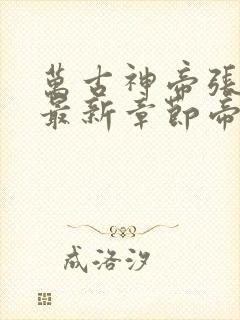 萬古神帝張
最新章節帝
成洛汐